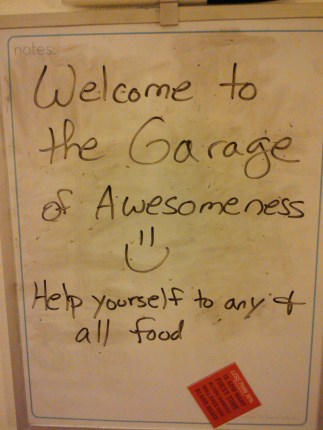 notes:
Welcome to
the Garage
of Awesomeness
Help yourself to any &
all food